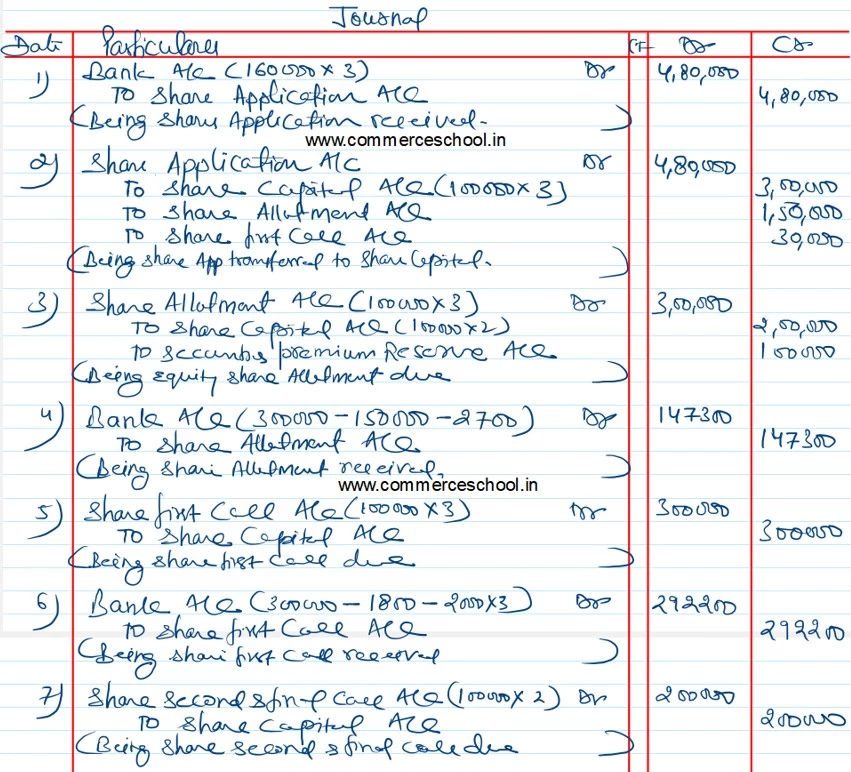 Journal
Date Particulars CF Dr Cr
1) Bank A/C (160000 x 3) Dr 4,80,000
To Share Application A/C 4,80,000
(Being Share Application received.)
www.commerceschool.in
2) Share Application A/C Dr 4,80,000
To Share Capital A/C (100000 x 3) 3,00,000
To Share Allotment A/C 1,50,000
To Share first Call A/C 30,000
(Being share App transferred to Share Capital.)
3) Share Allotment A/C (100000 x 3) Dr 3,00,000
To Share Capital A/C (100000 x 2) 2,00,000
To Securities premium Reserve A/C 100000
(Being Equity Share Allotment due)
4) Bank A/C (300000 - 150000 - 2700) Dr 147300
To Share Allotment A/C 147300
(Being Share Allotment received.)
www.commerceschool.in
5) Share first Call A/C (100000 x 3) Dr 300000
To Share Capital A/C 300000
(Being share first Call due)
6) Bank A/C (300000 - 1800 - 2000 x 3) Dr 292200
To Share first Call A/C 292200
(Being share first Call received)
7) Share Second & final Call A/C (100000 x 2) Dr 200000
To Share Capital A/C 200000
(Being Share second & final call due)